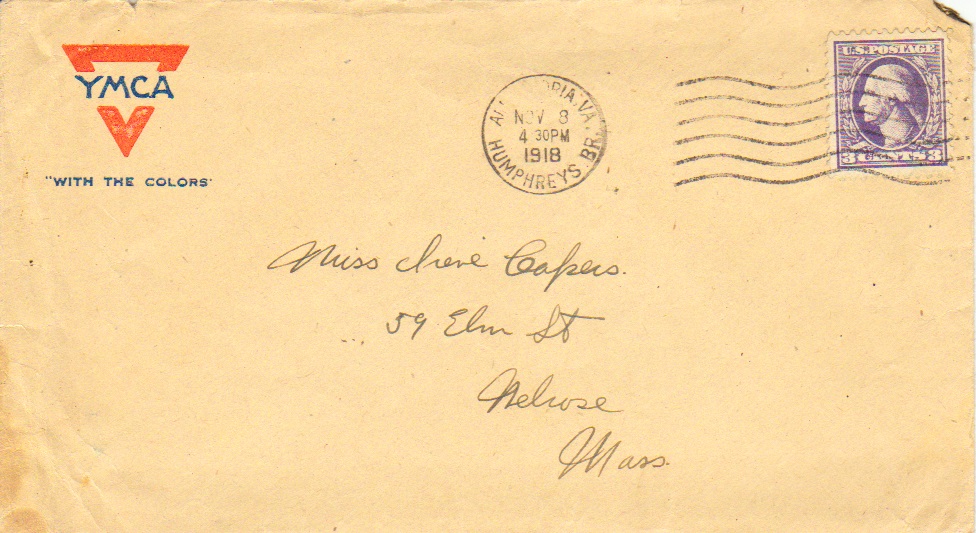 YMCA
"WITH THE COLORS"
ALEXANDRIA, VA.
NOV 8
4 30PM
1918
HUMPHREYS BR.
U.S. POSTAGE
3 CENTS 3
Miss Irene Capers.
59 Elm St
Melrose
Mass.